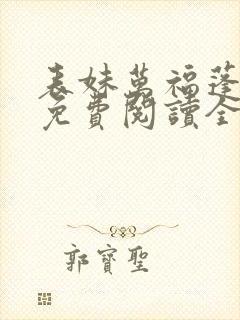 表妹萬福蓬
免費閱讀全
郭寶聖